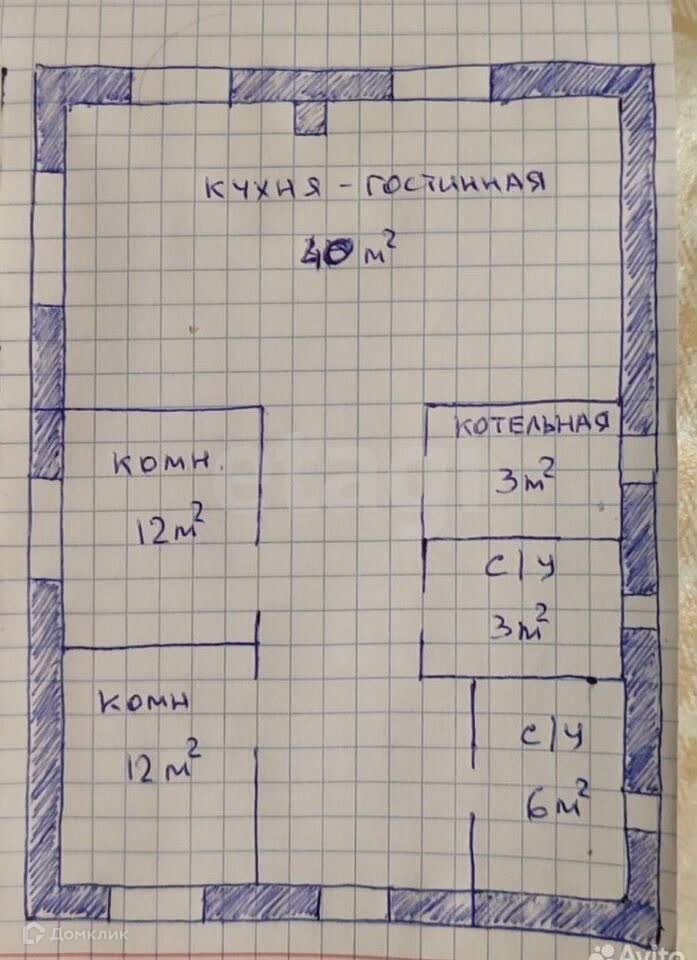 кухня - гостинная
40 м²
котельная
3 м²
комн.
12 м²
с/у
3 м²
комн
12 м²
с/у
6 м²
etagi
Домклик
Avito